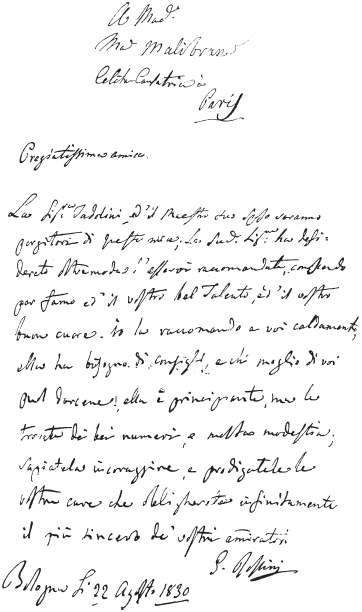 A Mad.e
Ma.d Malibran
Celebre Cantatrice à
Paris
Pregiatissima amica.
La Sig.ra Taddini, ed il Maestro suo Sposo saranno
porgitori di questa mia; La Sud.a Sig.ra ha desi-
derato oltremodo l'esservi raccomandata, conoscendo
per fama ed il vostro bel Talento, ed il vostro
buon cuore. Io la raccomando a voi caldamente,
ella ha bisogno di consigli, e chi meglio di voi
può darcene; ella è principiante, ma le
trovate dei bei numeri, e molta modestia;
sapiatela incoraggire, e prodigatele le
vostre cure che obligherete infinitamente
il più sincero de' vostri amiratori
G. Rossini
Bologna Li 22 Agosto 1830